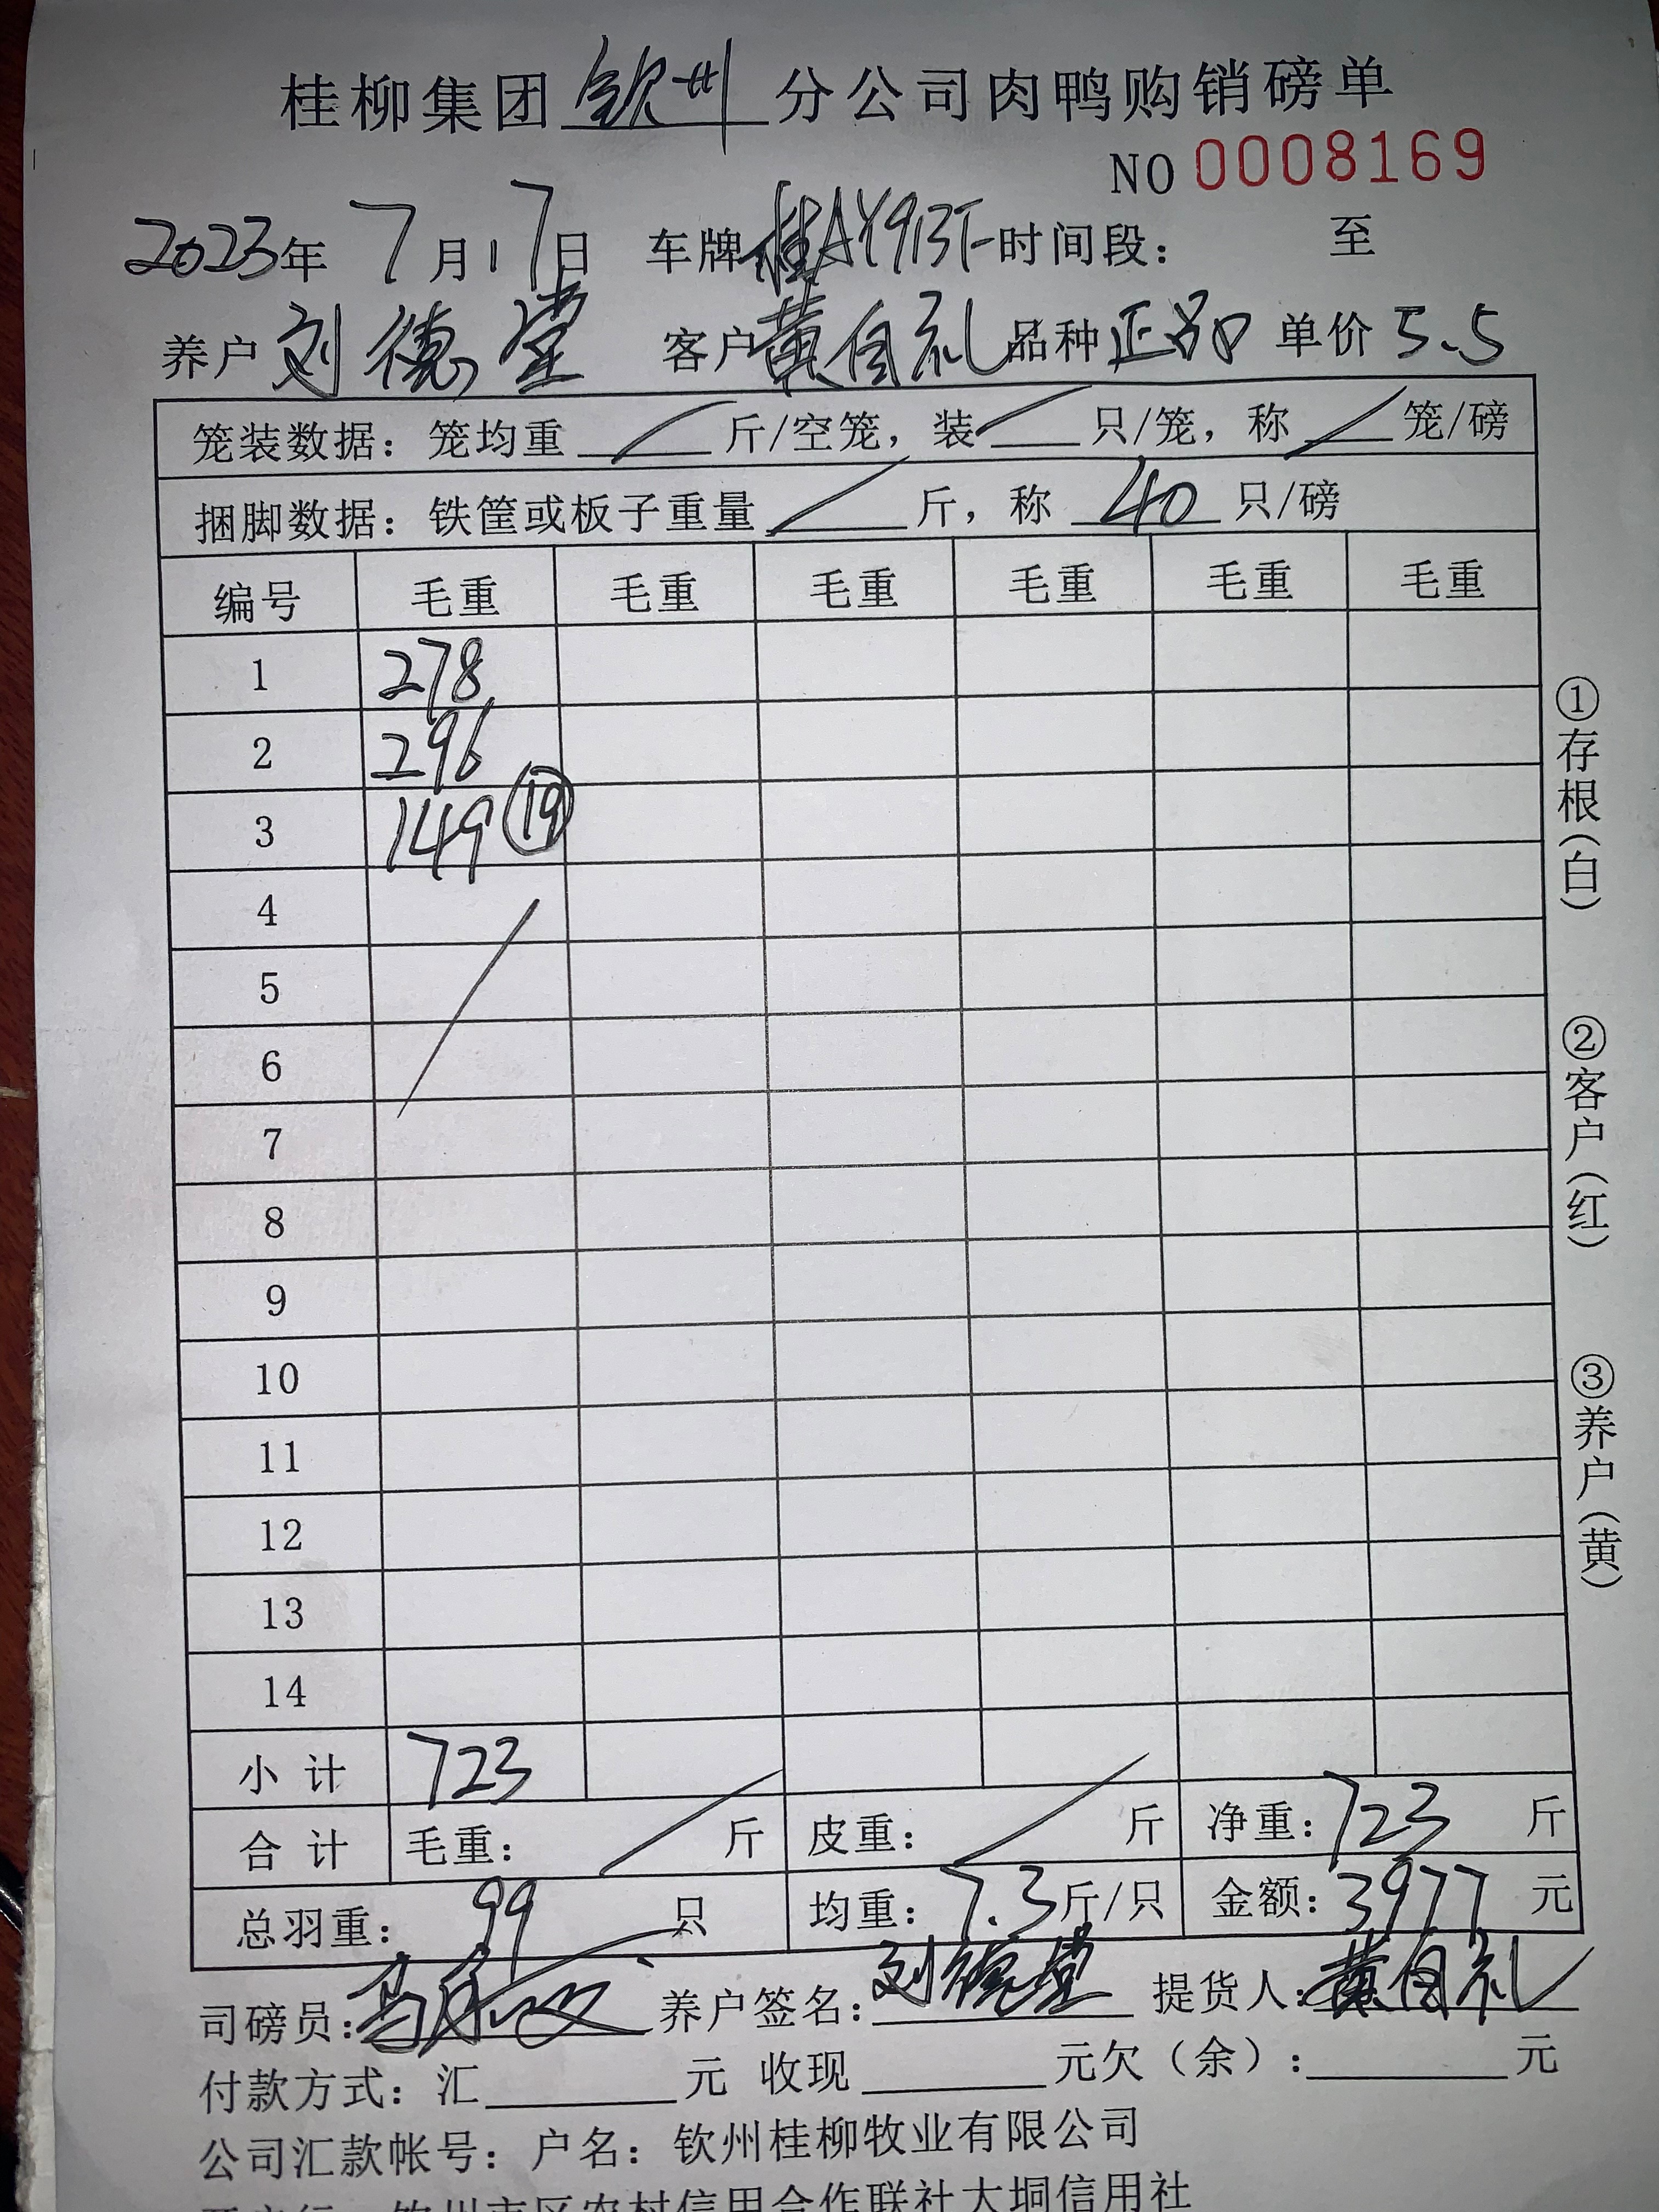 桂柳集团 钦州 分公司肉鸭购销磅单
NO 0008169
2023年 7月17日 车牌 桂AY913F 时间段： 至
养户 刘德堂 客户 黄自礼 品种 正品 单价 5.5
笼装数据：笼均重 / 斤/空笼，装 / 只/笼，称 / 笼/磅
捆脚数据：铁筐或板子重量 / 斤，称 40 只/磅
编号 毛重 毛重 毛重 毛重 毛重 毛重
1 278
2 296
3 149 ⑲
4
5
6
7
8
9
10
11
12
13
14
小计 723
合计 毛重： / 斤 皮重： / 斤 净重：723 斤
总羽重： 99 只 均重：7.3斤/只 金额：3977 元
司磅员： 养户签名：刘德堂 提货人：黄自礼
付款方式：汇____元 收现____元欠（余）：____元
公司汇款帐号：户名：钦州桂柳牧业有限公司
钦州市区农村信用合作联社大垌信用社
①存根（白）
②客户（红）
③养户（黄）